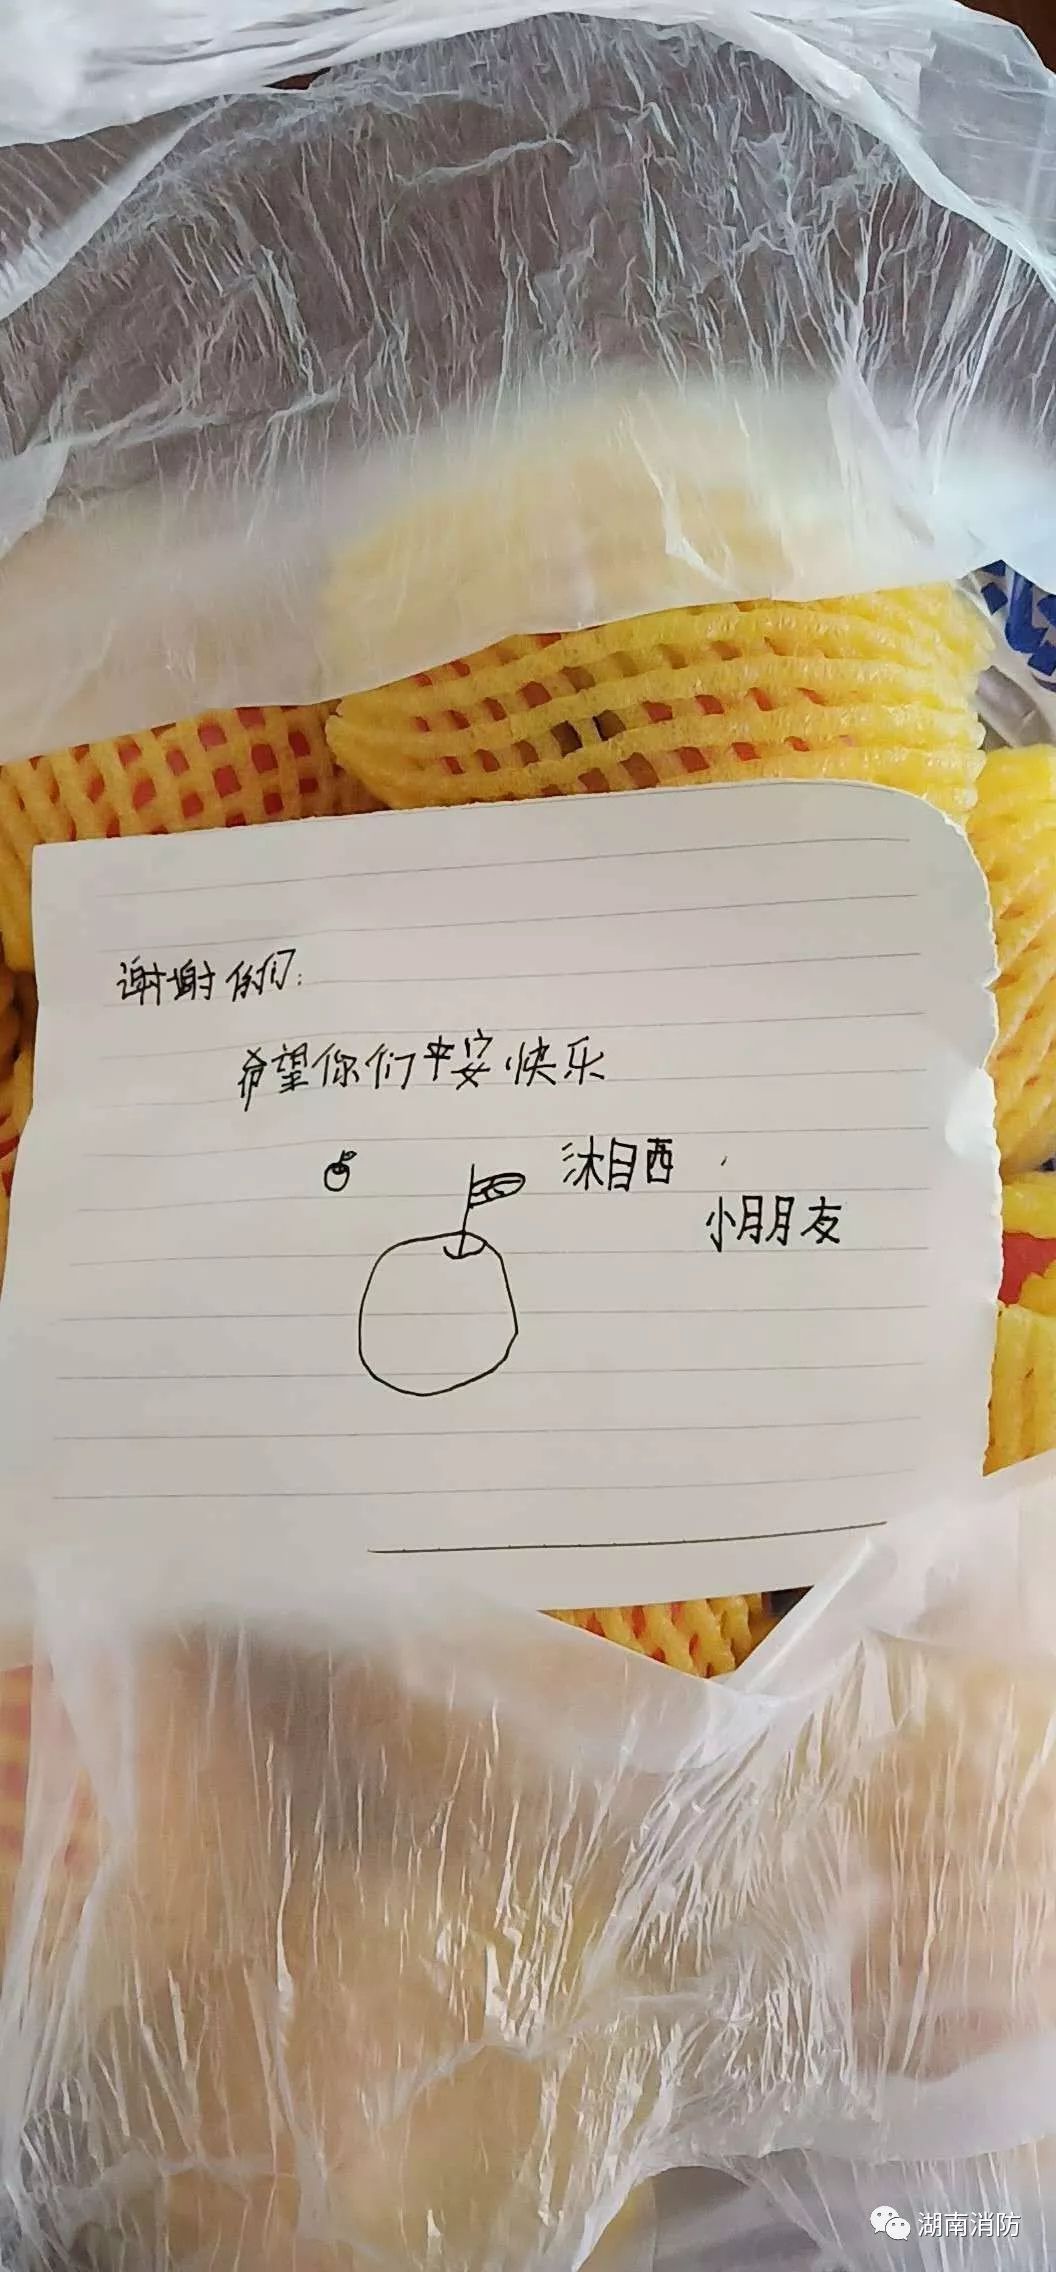 谢谢你们:
希望你们平安快乐
沐目西
小朋友
湖南消防